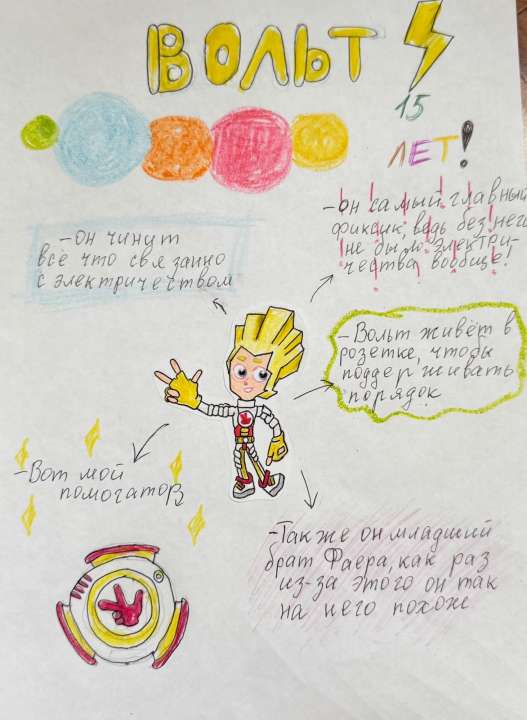 ВОЛЬТ
15
ЛЕТ!
-он самый главный
фиксик, ведь без него
не было электри-
чества вообще!
-он чинит
всё что связанно
с электричеством
-Вольт живёт в
розетке, чтобы
поддерживать
порядок
-Вот мой
помогатор
-Также он младший
брат Фаера, как раз
из-за этого он так
на него похож